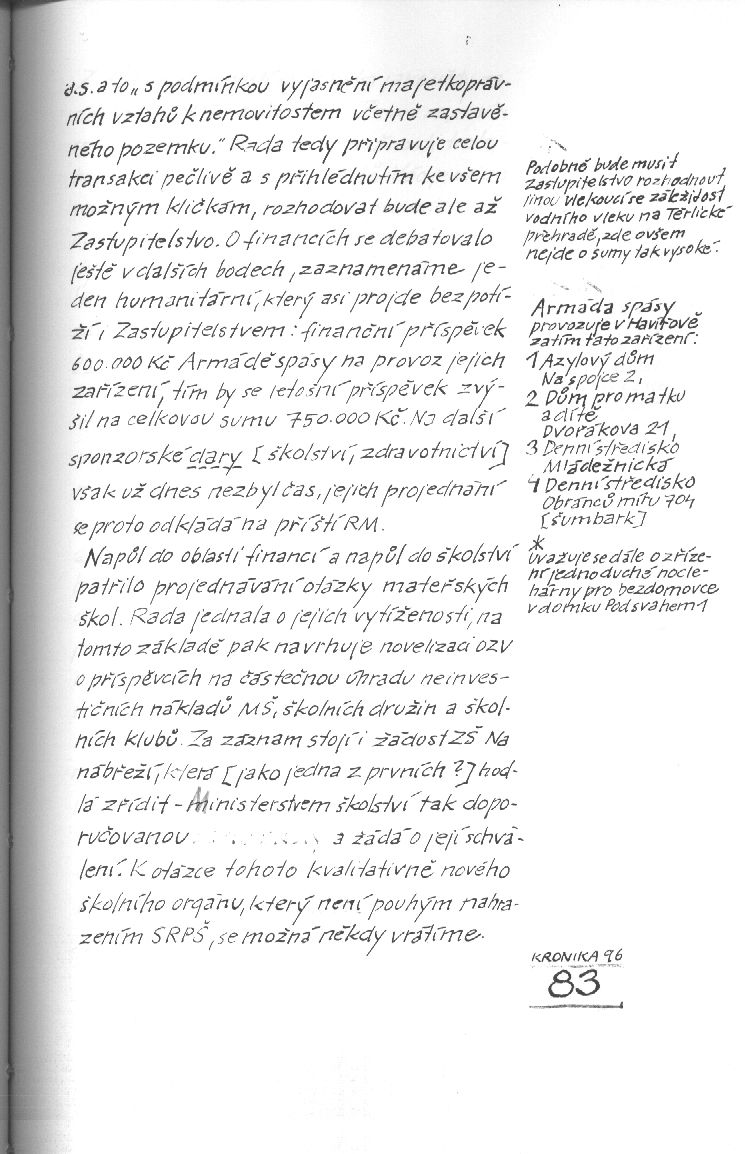 a.s. a to „s podmínkou vyjasnění majetkopráv-
ních vztahů k nemovitostem včetně zastavě-
ného pozemku." Rada tedy připravuje celou
transakci pečlivě a s přihlédnutím ke všem
možným kličkám, rozhodovat bude ale až
Zastupitelstvo. O financích se debatovalo
ještě v dalších bodech, zaznamenáme je-
den humanitární, který asi projde bez potí-
ží i Zastupitelstvem: finanční příspěvek
600.000 Kč Armádě spásy na provoz jejich
zařízení, tím by se letošní příspěvek zvý-
šil na celkovou sumu 750.000 Kč. Na další
sponzorské dary [školství, zdravotnictví]
však už dnes nezbyl čas, jejich projednání
se proto odkládá na příští RM.
Napůl do oblasti financí a napůl do školství
patřilo projednávání otázky mateřských
škol. Rada jednala o jejich vytíženosti, na
tomto základě pak navrhuje novelizaci OZV
o příspěvcích na částečnou úhradu neinves-
tičních nákladů MŠ, školních družin a škol-
ních klubů. Za záznam stojí i žádost ZŠ Na
nábřeží, která [jako jedna z prvních?] hod-
lá zřídit - Ministerstvem školství tak dopo-
ručovanou a žádá o její schvá-
lení. K otázce tohoto kvalitativně nového
školního orgánu, který není pouhým nahra-
zením SRPŠ, se možná někdy vrátíme.
Podobně bude musit
zastupitelstvo rozhodnout
jinou vlekoucí se záležitost
vodního vleku na Těrlické
přehradě, zde ovšem
nejde o sumy tak vysoké.
Armáda spásy
provozuje v Havířově
zatím tato zařízení:
1 Azylový dům
Na spojce 2,
2 Dům pro matku
a dítě
Dvořákova 21,
3 Denní středisko
Mládežnická
4 Denní středisko
Obránců míru 704
[Šumbark]
*
Uvažuje se dále o zříze-
ní jednoduché nocle-
hárny pro bezdomovce
v domku Pod svahem 1
KRONIKA 96
83